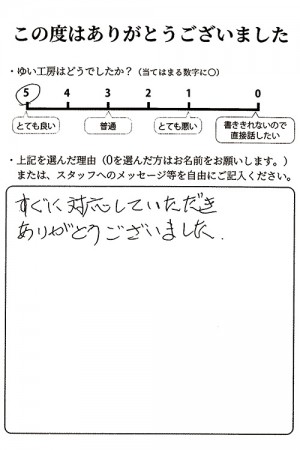 この度はありがとうございました
・ゆい工房はどうでしたか？（当てはまる数字に○）
5 4 3 2 1 0
とても良い 普通 とても悪い 書ききれないので
直接話したい
・上記を選んだ理由（0を選んだ方はお名前をお願いします。）
または、スタッフへのメッセージ等を自由にご記入ください。
すぐに対応していただき
ありがとうございました.